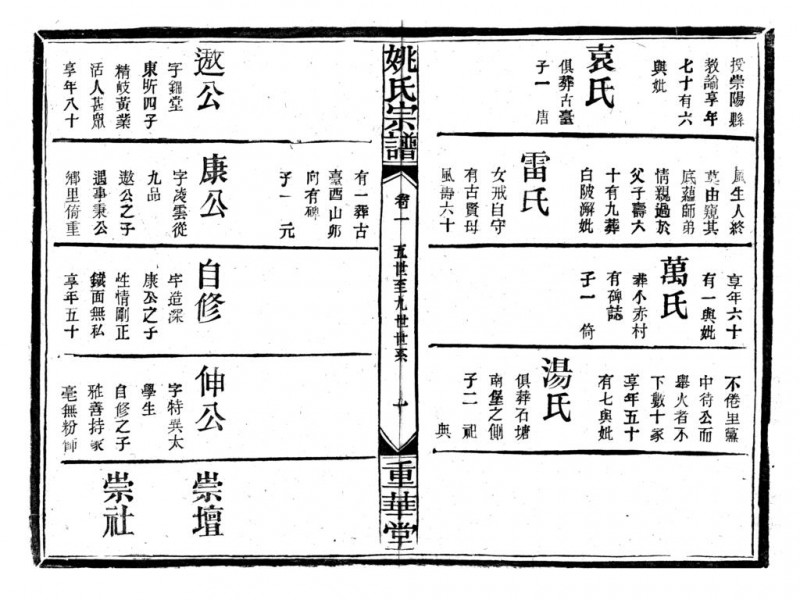 授崇陽縣
敎諭享年
七十有六
與妣
袁氏
俱葬古臺
子一 唐
風生人終
莫由窺其
底蘊師弟
情親過於
父子壽六
十有九葬
白陂澥妣
雷氏
女戒自守
有古賢母
風壽六十
享年六十
有一與妣
萬氏
葬小赤村
有碑誌
子一 倚
不倦里黨
中待公而
舉火者不
下數十家
享年五十
有七與妣
湯氏
俱葬石塘
南堡之側
子二 祖
與
姚氏宗譜
卷一 五世至九世世系 十
重華堂
遨公
字鎦堂
東昕四子
精岐黃業
活人甚眾
享年八十
有一葬古
臺酉山卯
向有碑
子一 元
康公
字淩雲從
九品
遨公之子
遇事秉公
鄉里倚重
自修
字造深
康公之子
性情剛正
鐵面無私
享年五十
伸公
字特異太
學生
自修之子
雅善持家
毫無粉飾
崇壇
崇社